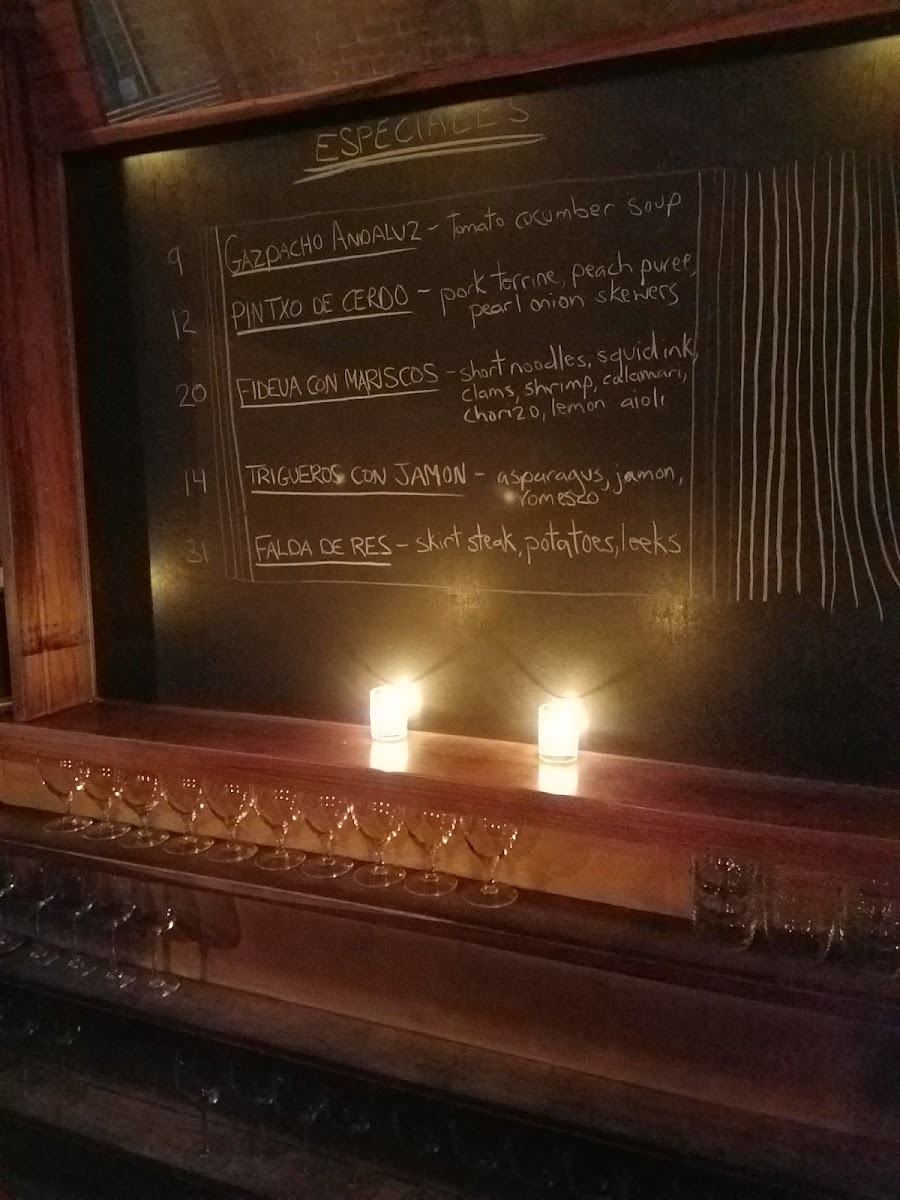 ESPECIALES
9 GAZPACHO ANDALUZ - Tomato cocumber soup
12 PINTXO DE CERDO - pork terrine, peach puree,
pearl onion skewers
20 FIDEUA CON MARISCOS - short noodles, squid ink,
clams, shrimp, calamari,
chorizo, lemon aioli
14 TRIGUEROS CON JAMON - asparagus, jamon,
romesco
31 FALDA DE RES - skirt steak, potatoes, leeks